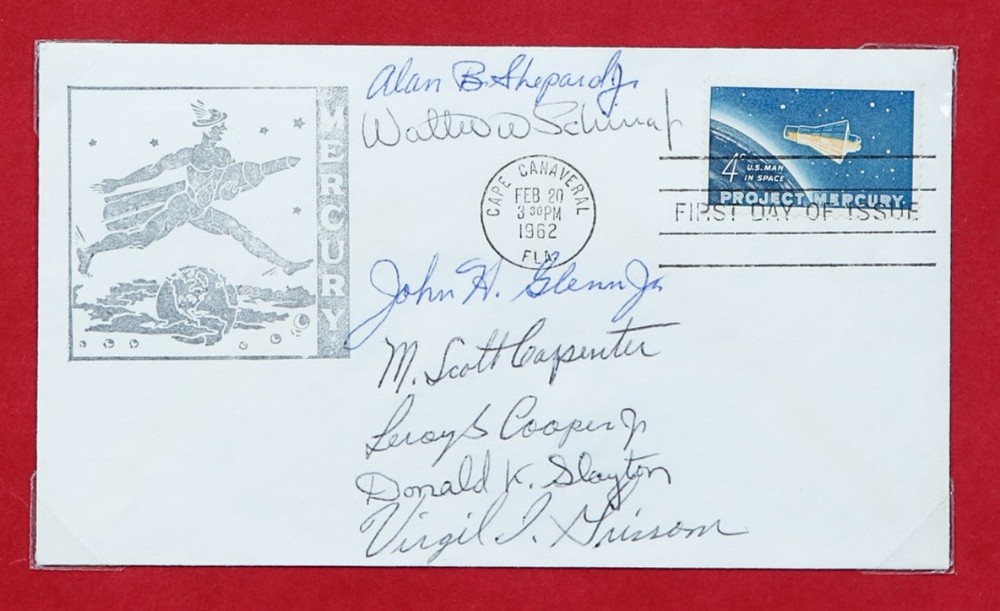 MERCURY
Alan B. Shepard Jr.
Walter W Schirra Jr
CAPE CANAVERAL
FEB 20
3 30 PM
1962
FLA.
4¢ U.S. MAN
IN SPACE
PROJECT MERCURY
FIRST DAY OF ISSUE
John H. Glenn Jr
M. Scott Carpenter
Leroy G Cooper Jr
Donald K. Slayton
Virgil I. Grissom